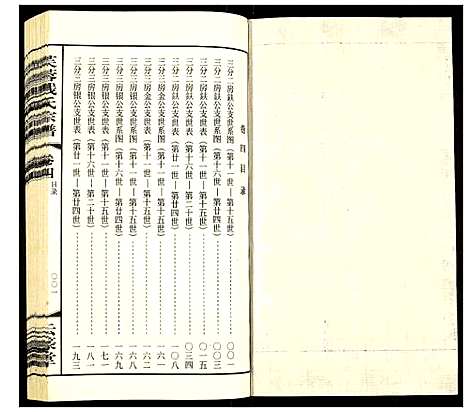 卷四目录
三分二房鈇公支世系图(第十一世—第十五世)……〇〇一
三分二房鈇公支世系图(第十六世—第廿四世)……〇〇三
三分二房鈇公支世表(第十一世—第十五世)……〇一五
三分二房鈇公支世表(第十六世—第二十世)……〇三四
三分二房鈇公支世表(第廿一世—第廿四世)……一〇八
三分三房金公支世系图(第十一世—第十五世)……一六一
三分三房金公支世表(第十一世—第十五世)……一六二
三分三房银公支世系图(第十一世—第十五世)……一六六
三分三房银公支世系图(第十六世—第廿四世)……一六九
三分三房银公支世表(第十一世—第十五世)……一七一
三分三房银公支世表(第十六世—第二十世)……一八一
三分三房银公支世表(第廿一世—第廿四世)……一九三
氏宗谱
卷四
目录
〇〇一
堂